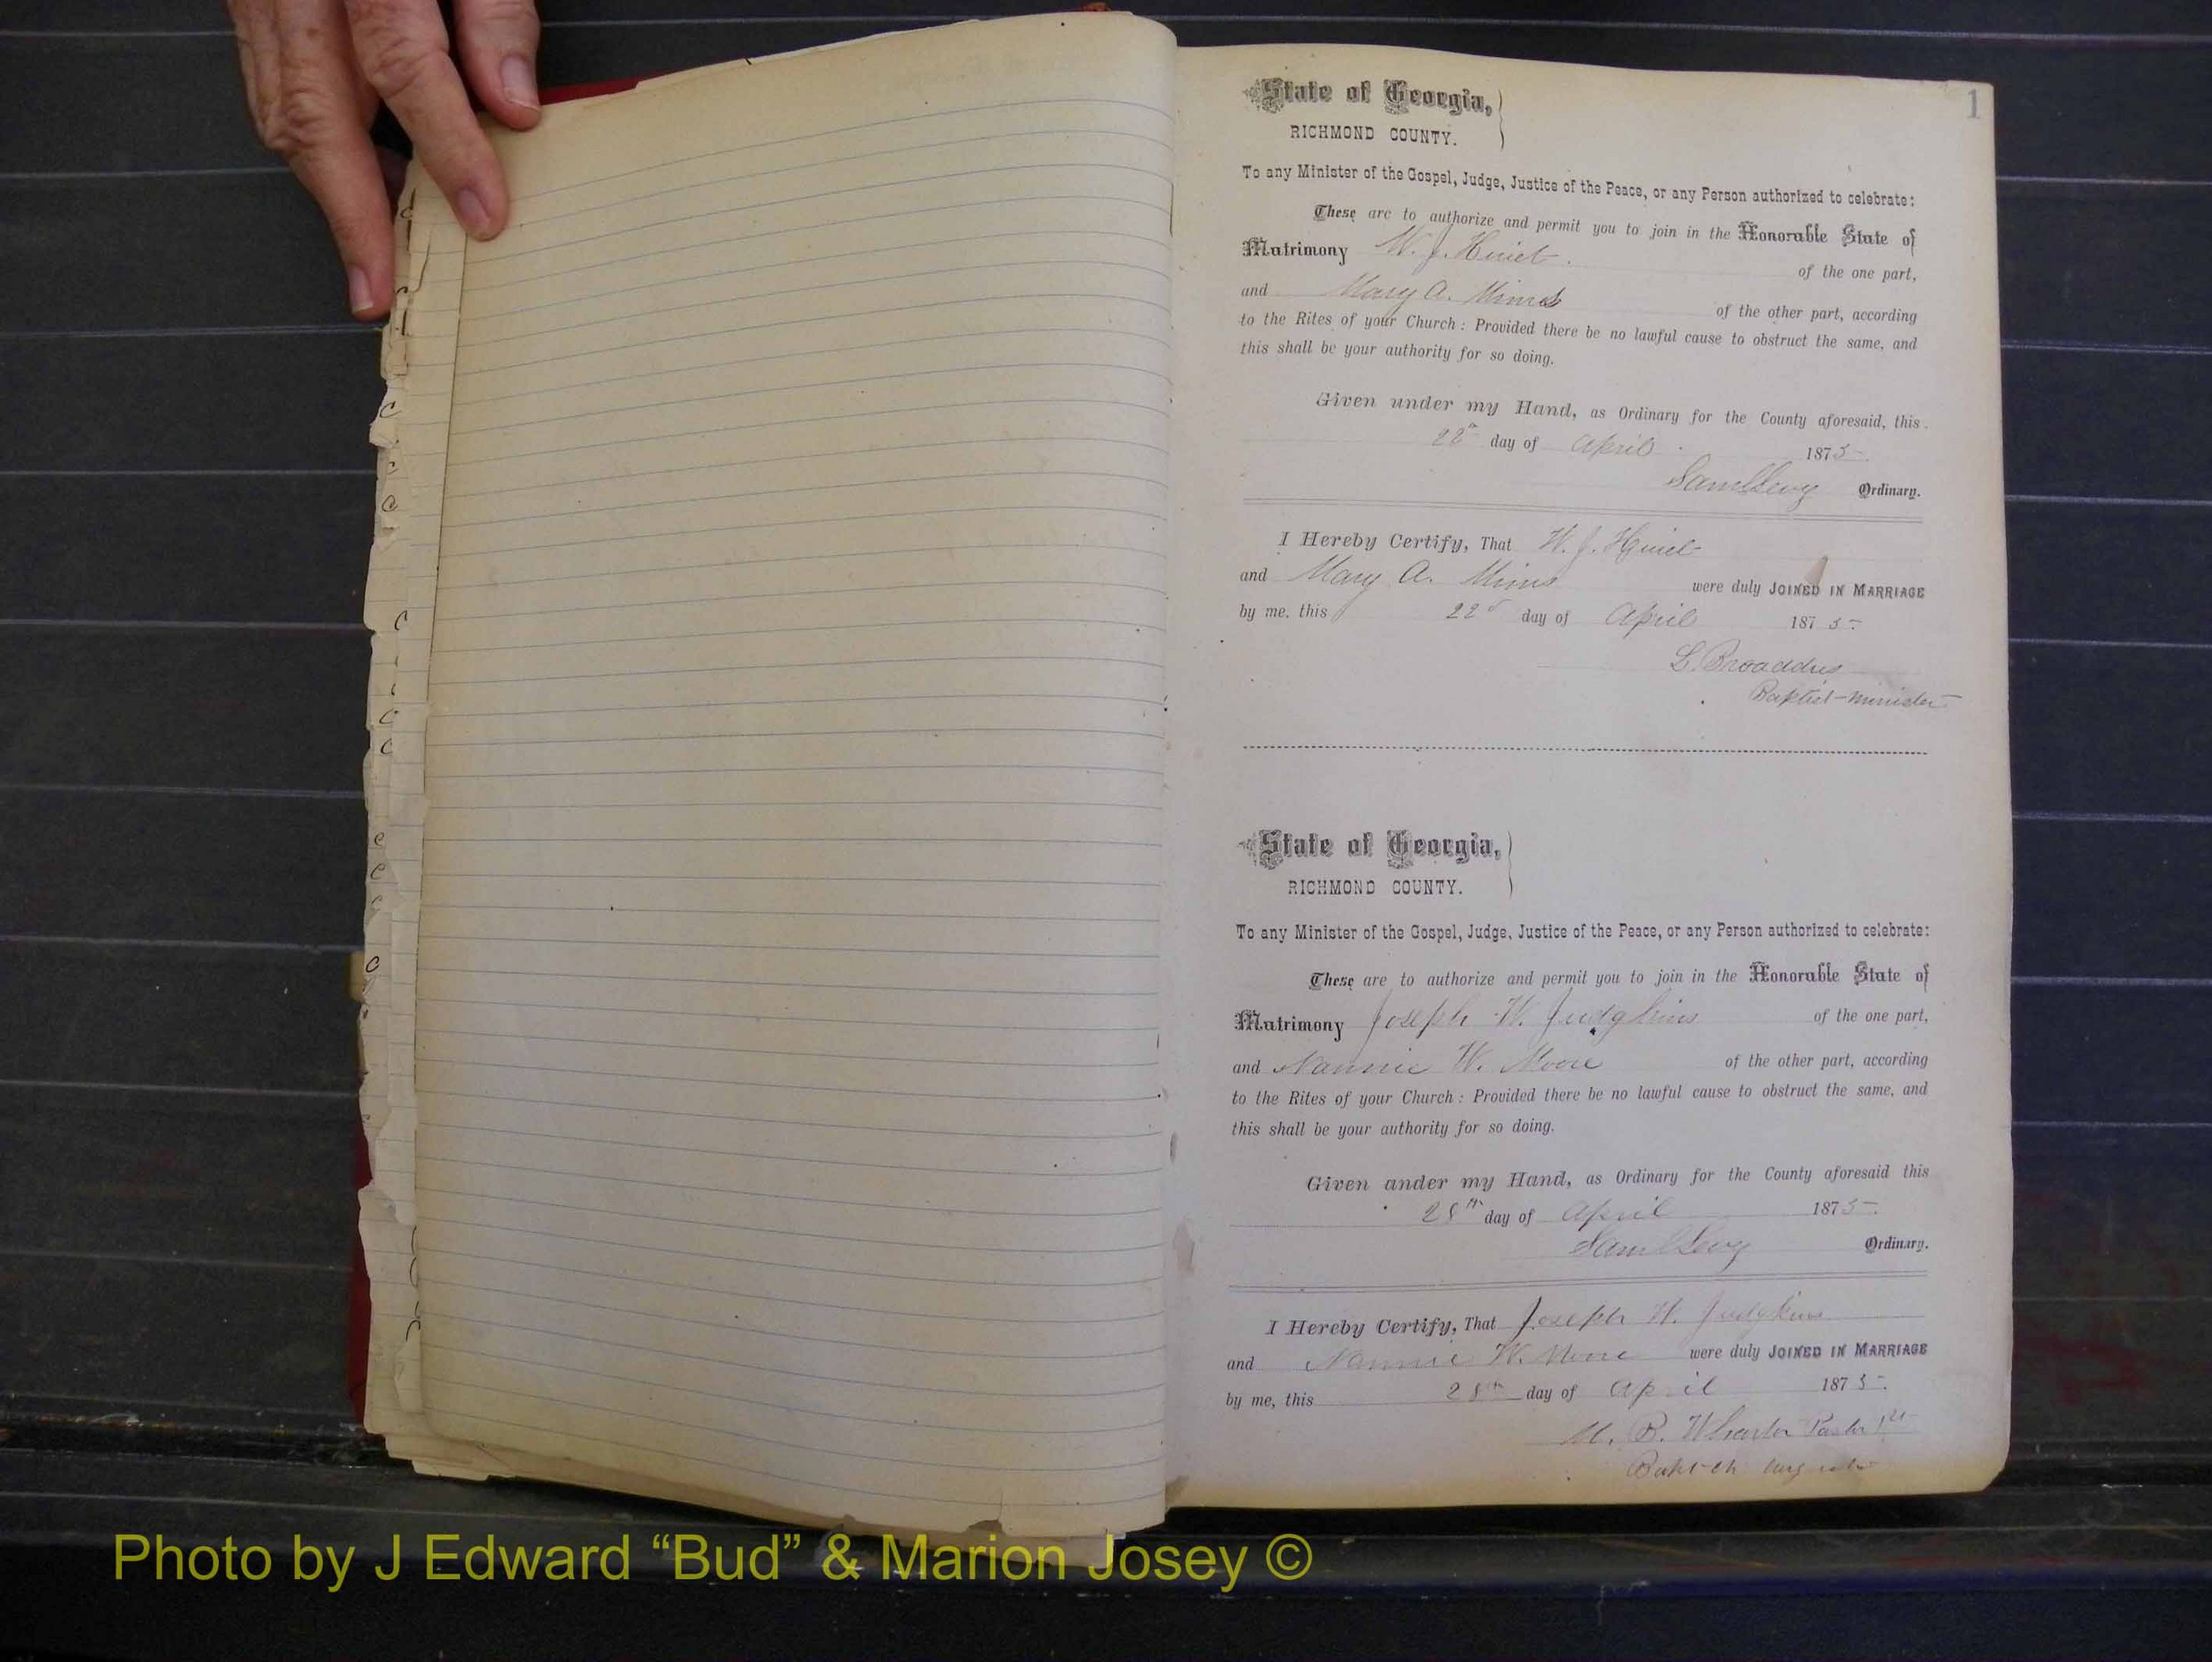 1
State of Georgia,
RICHMOND COUNTY.
To any Minister of the Gospel, Judge, Justice of the Peace, or any Person authorized to celebrate:
These are to authorize and permit you to join in the Honorable State of
Matrimony W. J. of the one part,
and Mary A. Mims of the other part, according
to the Rites of your Church: Provided there be no lawful cause to obstruct the same, and
this shall be your authority for so doing.
Given under my Hand, as Ordinary for the County aforesaid, this
22d day of April 1875
Saml Levy Ordinary.
I Hereby Certify, That W. J.
and Mary A. Mims were duly JOINED IN MARRIAGE
by me, this 22d day of April 1875
L. Broaddus
Baptist minister
State of Georgia,
RICHMOND COUNTY.
To any Minister of the Gospel, Judge, Justice of the Peace, or any Person authorized to celebrate:
These are to authorize and permit you to join in the Honorable State of
Matrimony Joseph W. Judgkins of the one part,
and Nannie W. Moore of the other part, according
to the Rites of your Church: Provided there be no lawful cause to obstruct the same, and
this shall be your authority for so doing.
Given under my Hand, as Ordinary for the County aforesaid this
28th day of April 1875
Saml Levy Ordinary.
I Hereby Certify, That Joseph W. Judgkins
and Nannie W. Moore were duly JOINED IN MARRIAGE
by me, this 28th day of April 1875
M. B. Wharton Pastor 1st
Photo by J Edward “Bud” & Marion Josey ©